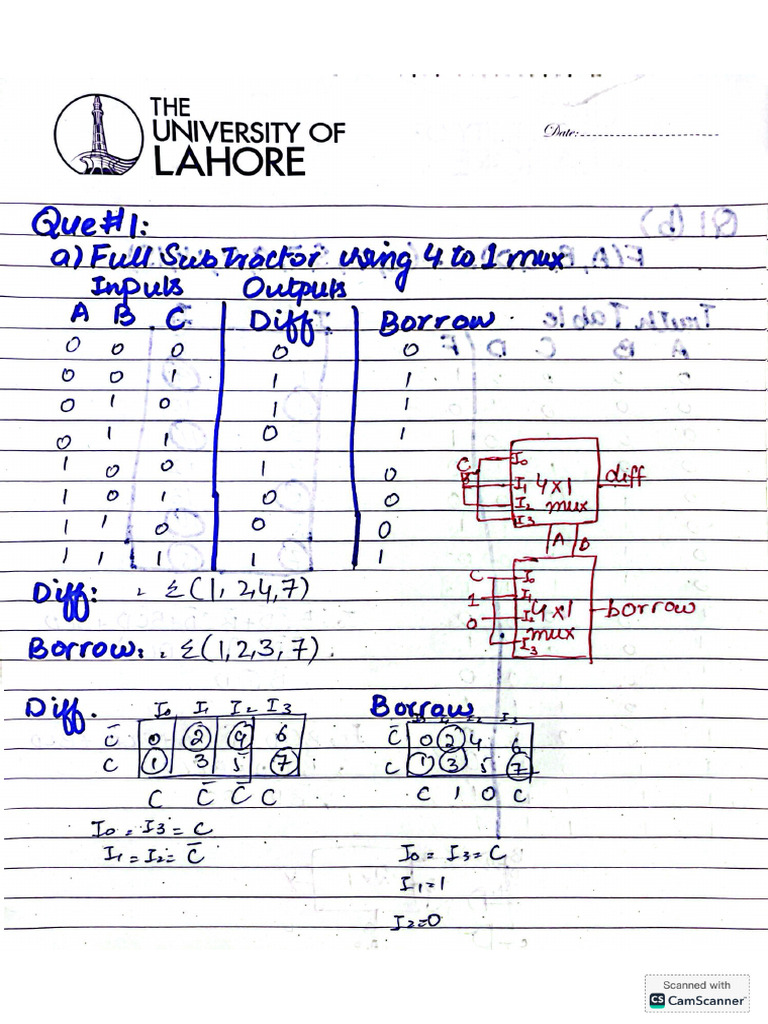 THE
UNIVERSITY OF
LAHORE
Date:
Que#1:
a) Full Subtractor using 4 to 1 mux
Inputs Outputs
A B C Diff. Borrow.
0 0 0 0 0
0 0 1 1 1
0 1 0 1 1
0 1 1 0 1
1 0 0 1 0
1 0 1 0 0
1 1 0 0 0
1 1 1 1 1
C I0
I1 4x1 diff
I2 mux
I3
A B
C I0
1 I1
0 I2 4x1 borrow
mux
I3
Diff: = Σ(1, 2,4,7)
Borrow: = Σ(1,2,3,7).
Diff. I0 I1 I2 I3
C̄ 0 2 4 6
C 1 3 5 7
C C̄ C̄ C
I0 = I3 = C
I1 = I2 = C̄
Borrow
I0 I1 I2 I3
C̄ 0 2 4 6
C 1 3 5 7
C 1 0 C
I0 = I3 = C
I1 = 1
I2=0
Scanned with
CS CamScanner